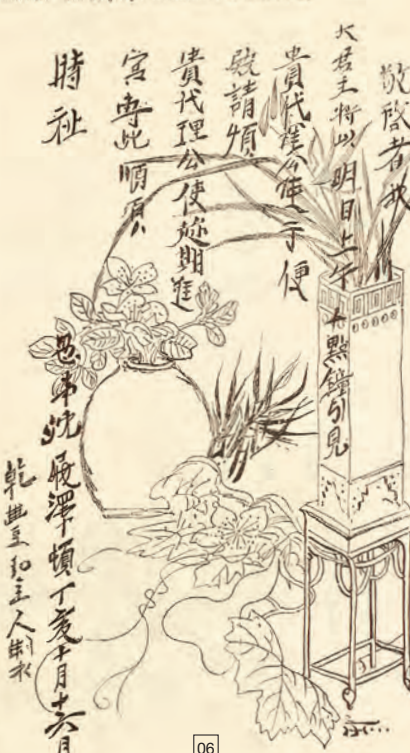 敬啓者我
大君主將以明日上午十點鐘引見
貴代理公使于便
殿請煩
貴代理公使趁期進
宮專此順頌
時祉
愚弟沈履澤頓丁亥十月十六日
乾豊主人制
06